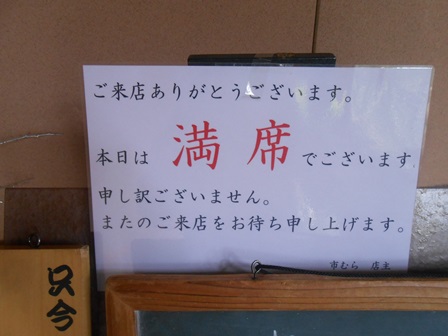 ご来店ありがとうございます。
本日は 満席 でございます
申し訳ございません。
またのご来店をお待ち申し上げます。
市むら 店主
只今